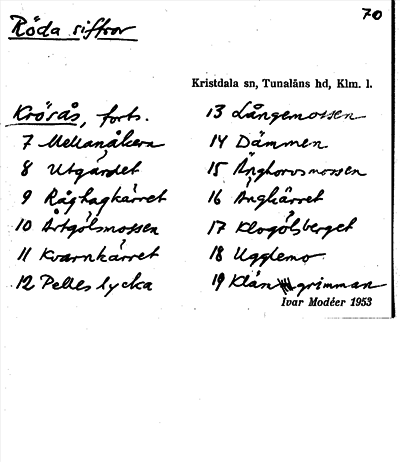 70
Röda siffror
Kristdala sn, Tunaläns hd, Klm. l.
Krösås, forts.
7 Mellanåkern
8 Utgärdet
9 Råghagkärret
10 Ärtgölsmossen
11 Kvarnkärret
12 Pelles lycka
13 Långemossen
14 Dämmen
15 Änghorvsmossen
16 Ängkärret
17 Klogölsberget
18 Ugglemo
19 Klån grimman
Ivar Modéer 1953